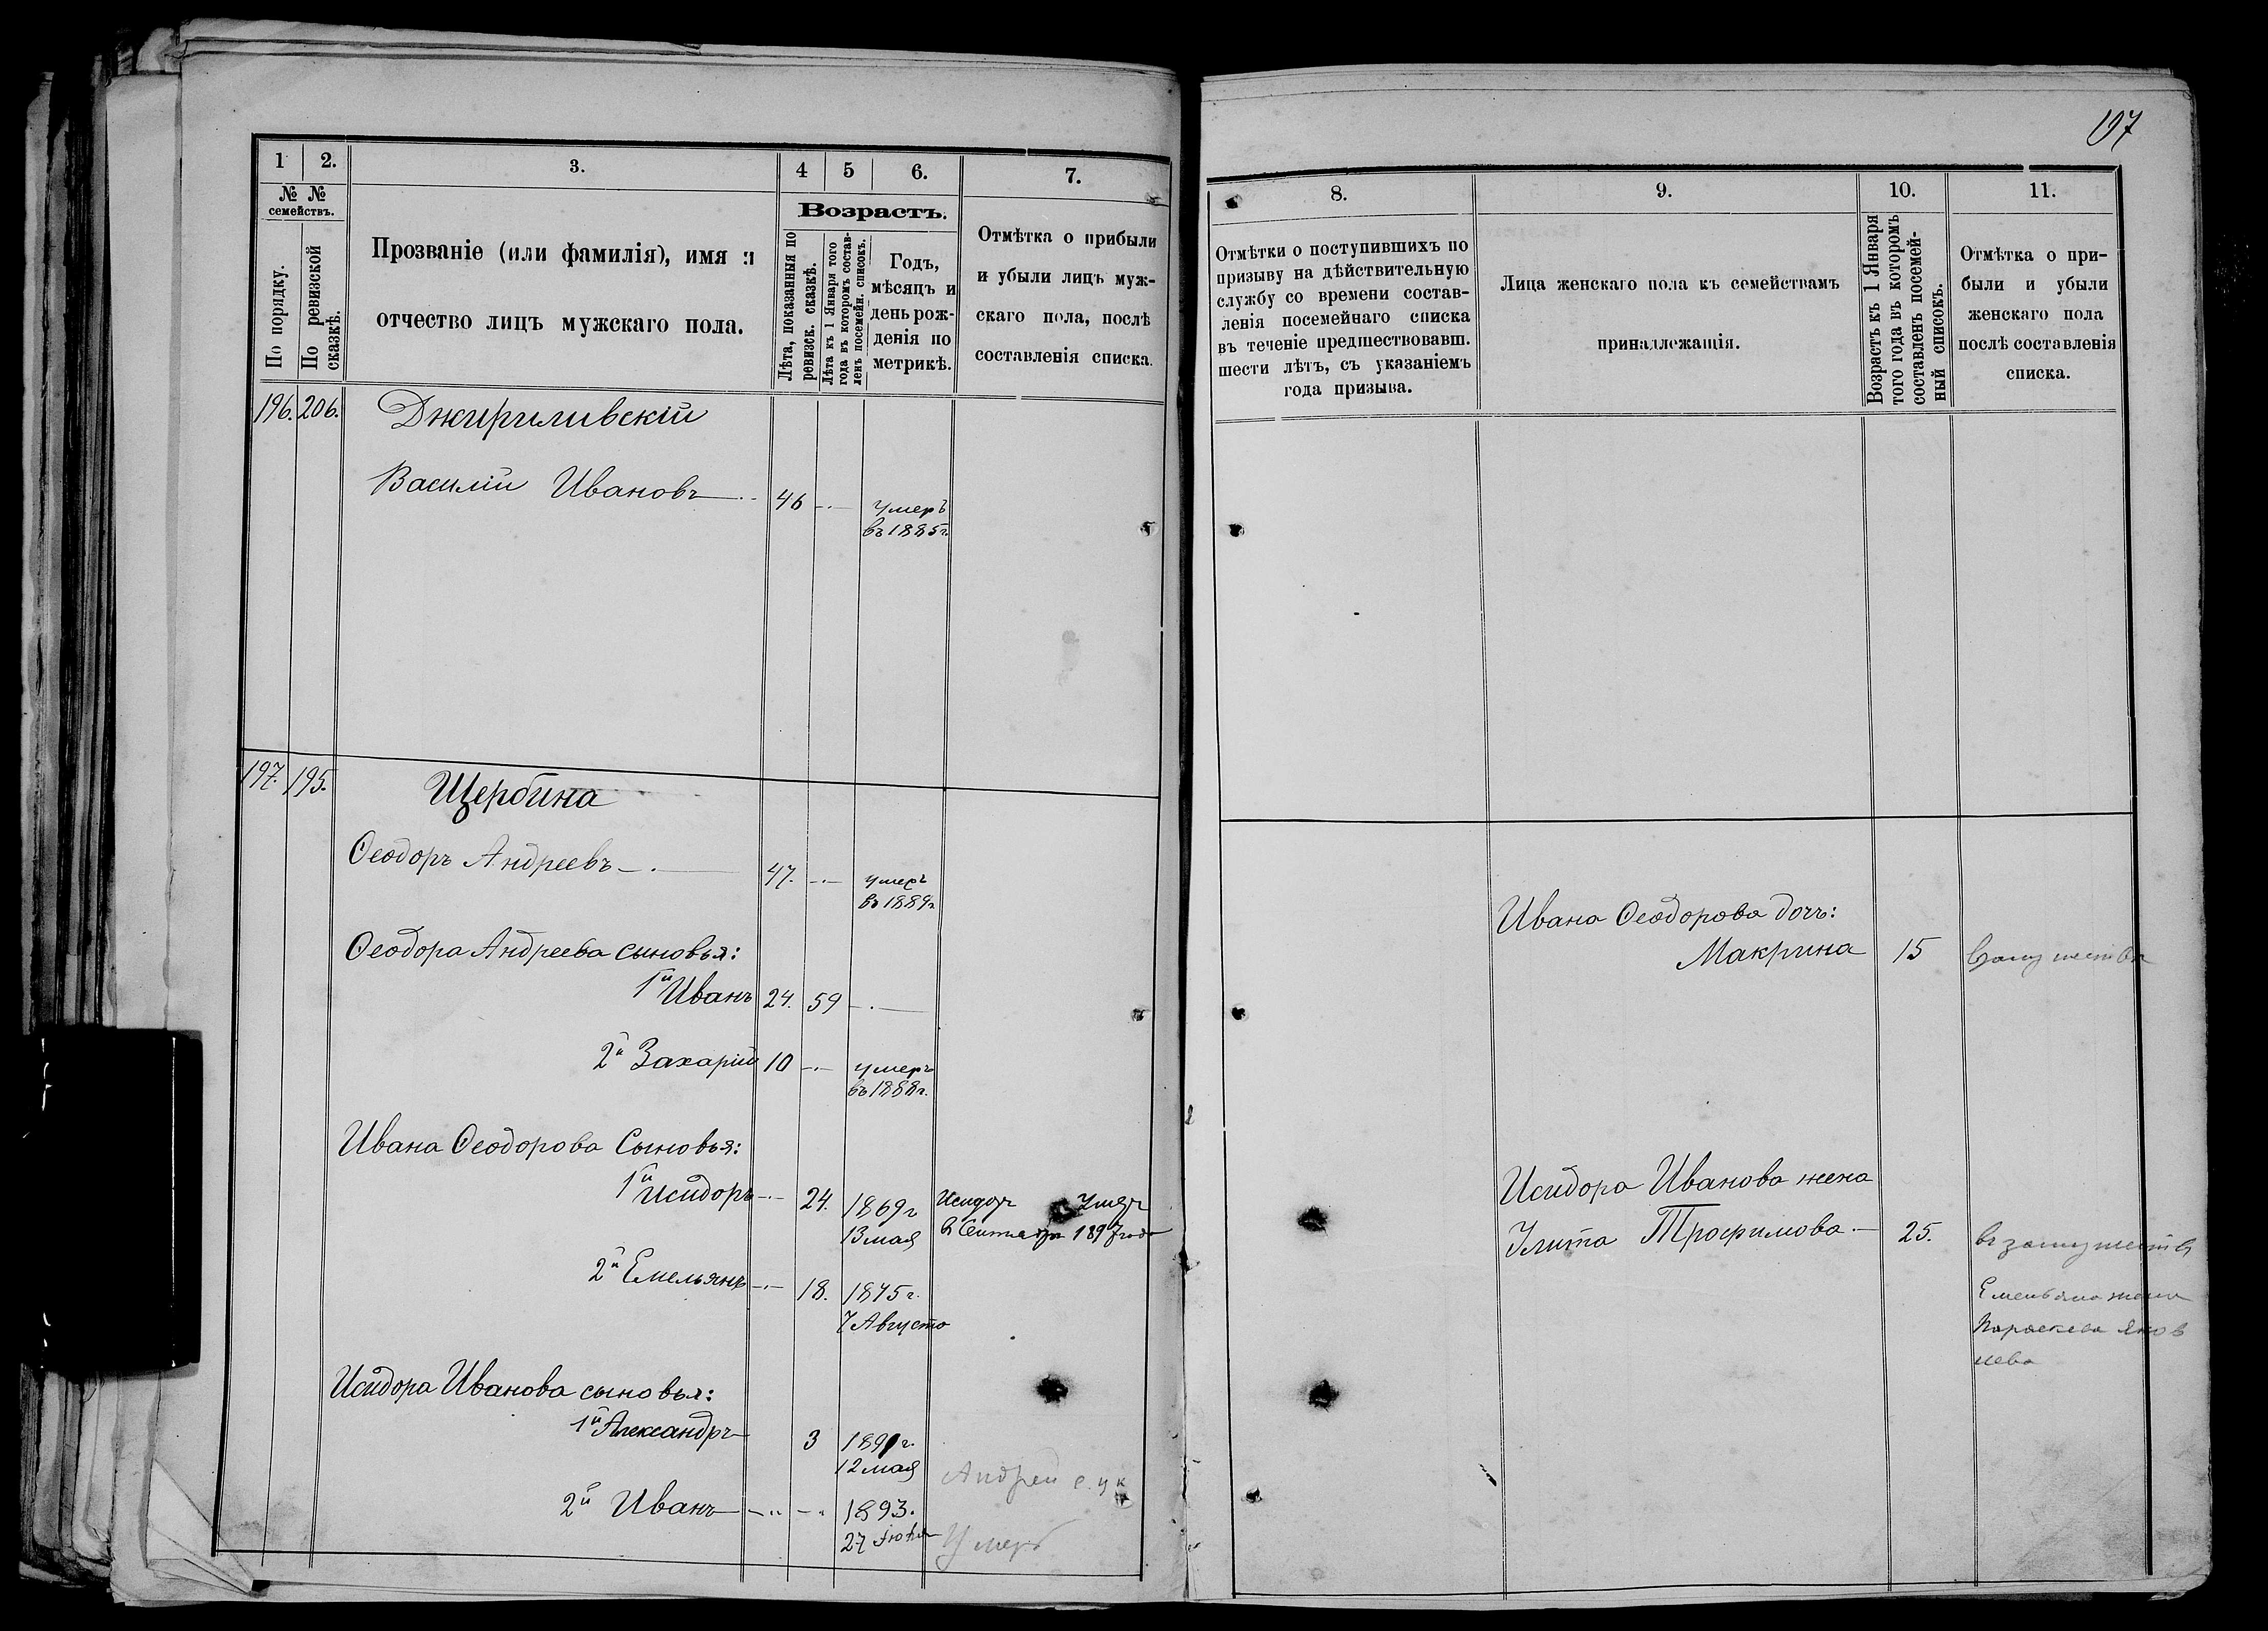 107
1
2.
3.
4
5
6.
7.
№ №
семействъ.
По порядку.
По ревизской
сказкѣ.
Прозваніе (или фамилія), имя и
отчество лицъ мужскаго пола.
Возрастъ.
Лѣта, показанныя по
ревизск. сказкѣ.
Лѣта къ 1 Января того
года въ которомъ состав-
ленъ посемейн. списокъ.
Годъ,
мѣсяцъ и
день рож-
денія по
метрикѣ.
Отмѣтка о прибыли
и убыли лицъ муж-
скаго пола, послѣ
составленія списка.
196. 206. Джириливскій
Василій Ивановъ 46
умеръ
въ 1885 г.
197. 195. Щербина
Ѳеодоръ Андреевъ 47.
умеръ
въ 1889 г
Ѳеодора Андреева сыновья:
1й Иванъ 24. 59
2й Захарій 10
умеръ
въ 1888 г.
Ивана Ѳеодорова Сыновья:
1й Исидоръ 24. 1869 г
13 мая
Исидоръ Умеръ
в Сентября 1897 года
2й Емельянъ 18. 1875 г.
7 Августа
Исидора Иванова сыновья:
1й Александръ 3 1891 г.
12 мая
Андрей
2й Иванъ 1893.
27
Умеръ
8.
9.
10.
11.
Отмѣтки о поступившихъ по
призыву на дѣйствительную
службу со времени состав-
ленія посемейнаго списка
въ теченіе предшествовавш.
шести лѣтъ, съ указаніемъ
года призыва.
Лица женскаго пола къ семействамъ
принадлежащія.
Возрастъ къ 1 Января
того года въ которомъ
составленъ посемей-
ный списокъ.
Отмѣтка о при-
были и убыли
женскаго пола
послѣ составленія
списка.
Ивана Ѳеодорова дочь:
Макрина 15 взамужестве
Исидора Иванова жена
Улита Трофимова 25. въ замужеств
Емельяна жена
Параскева Яков
лева